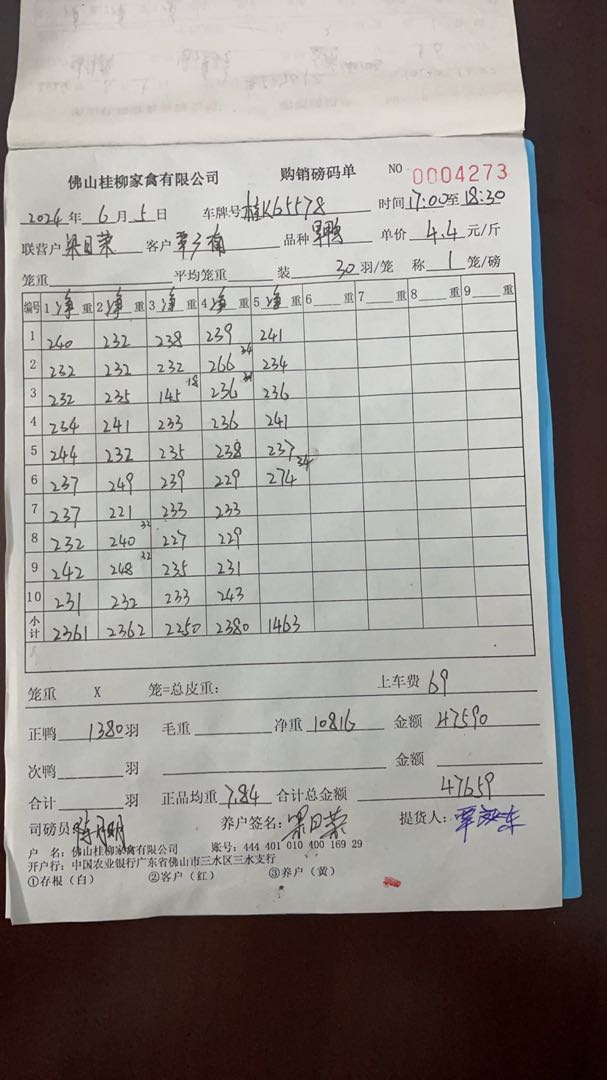 佛山桂柳家禽有限公司 购销磅码单 NO 0004273
2024 年 6 月 5 日 车牌号 桂K65578 时间 17:00至18:30
联营户 梁日荣 客户 品种 单价 4.4 元/斤
笼重 平均笼重 装 30 羽/笼 称 1 笼/磅
编号 1 净 重 2 净 重 3 净 重 4 净 重 5 净 重 6 重 7 重 8 重 9 重
1 240 232 238 239 241
2 232 232 232 266 34 234
3 232 235 145 18 236 236
4 234 241 233 236 241
5 244 232 235 238 237
6 237 249 239 229 274 34
7 237 221 233 233
8 232 240 32 227 229
9 242 248 32 235 231
10 231 232 233 243
小计 2361 2362 2250 2380 1463
笼重 X 笼=总皮重: 上车费 69
正鸭 1380 羽 毛重 净重 10816 金额 47590
次鸭 羽 金额
合计 羽 正品均重 7.84 合计总金额 47659
司磅员 养户签名: 梁日荣 提货人:
户 名: 佛山桂柳家禽有限公司 账号: 444 401 010 400 169 29
开户行: 中国农业银行广东省佛山市三水区三水支行
①存根（白） ②客户（红） ③养户（黄）